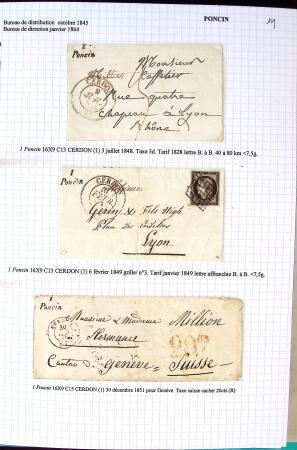 Bureau de distribution octobre 1845
PONCIN
Bureau de direction janvier 1864
1
Poncin
Monsieur
CERDON
Rue quatre
chapeau à Lyon
Rhône
1 Poncin 16X9 C13 CERDON (1) 3 juillet 1848. Taxe 3d. Tarif 1828 lettre B. à B. 40 à 80 km <7,5g.
1
Poncin
CERDON
Gérin & Fils
Lyon
1 Poncin 16X9 C13 CERDON (1) 6 février 1849 grille n°3. Tarif janvier 1849 lettre affranchie B. à B. <7,5g.
1
Poncin
Monsieur et Madame Million
Hermance
Canton de Genève Suisse
1 Poncin 16X9 C15 CERDON (1) 30 décembre 1851 pour Genève. Taxe suisse cachet 20cts (R)